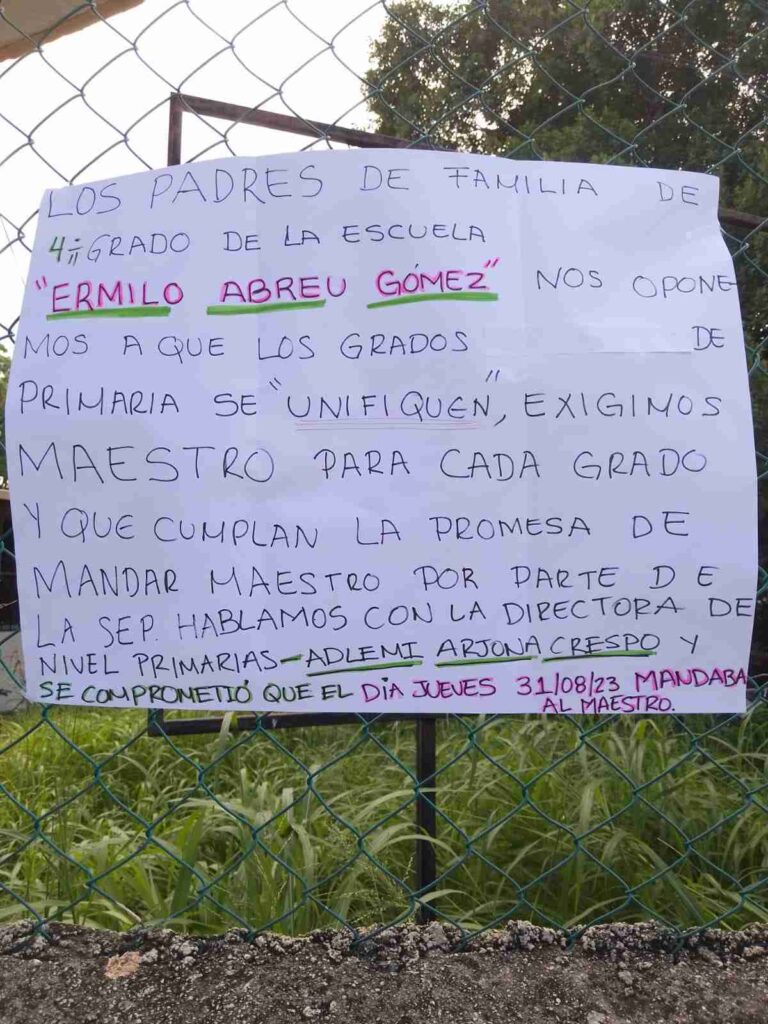 LOS PADRES DE FAMILIA DE
4º GRADO DE LA ESCUELA
"ERMILO ABREU GÓMEZ" NOS OPONE-
MOS A QUE LOS GRADOS DE
PRIMARIA SE "UNIFIQUEN", EXIGIMOS
MAESTRO PARA CADA GRADO
Y QUE CUMPLAN LA PROMESA DE
MANDAR MAESTRO POR PARTE DE
LA SEP. HABLAMOS CON LA DIRECTORA DE
NIVEL PRIMARIAS-ADLEMI ARJONA CRESPO Y
SE COMPROMETIÓ QUE EL DÍA JUEVES 31/08/23 MANDABA
AL MAESTRO.